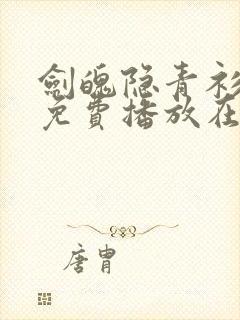 劍魄隐青衫
免費播放在
唐胄